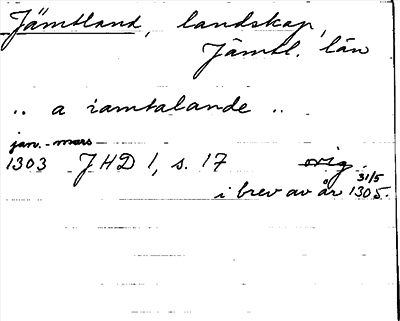 Jämtland, landskap,
Jämtl. län
.. a iamtalande ..
jan. - mars
1303 JHD 1, s. 17 orig.
i brev av år 31/5 1305.